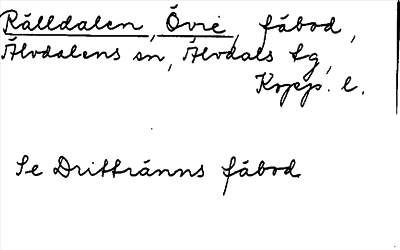 Rålldalen, Övre, fäbod,
Älvdalens sn, Älvdals tg,
Kopp. l.
Se Drittränns fäbod